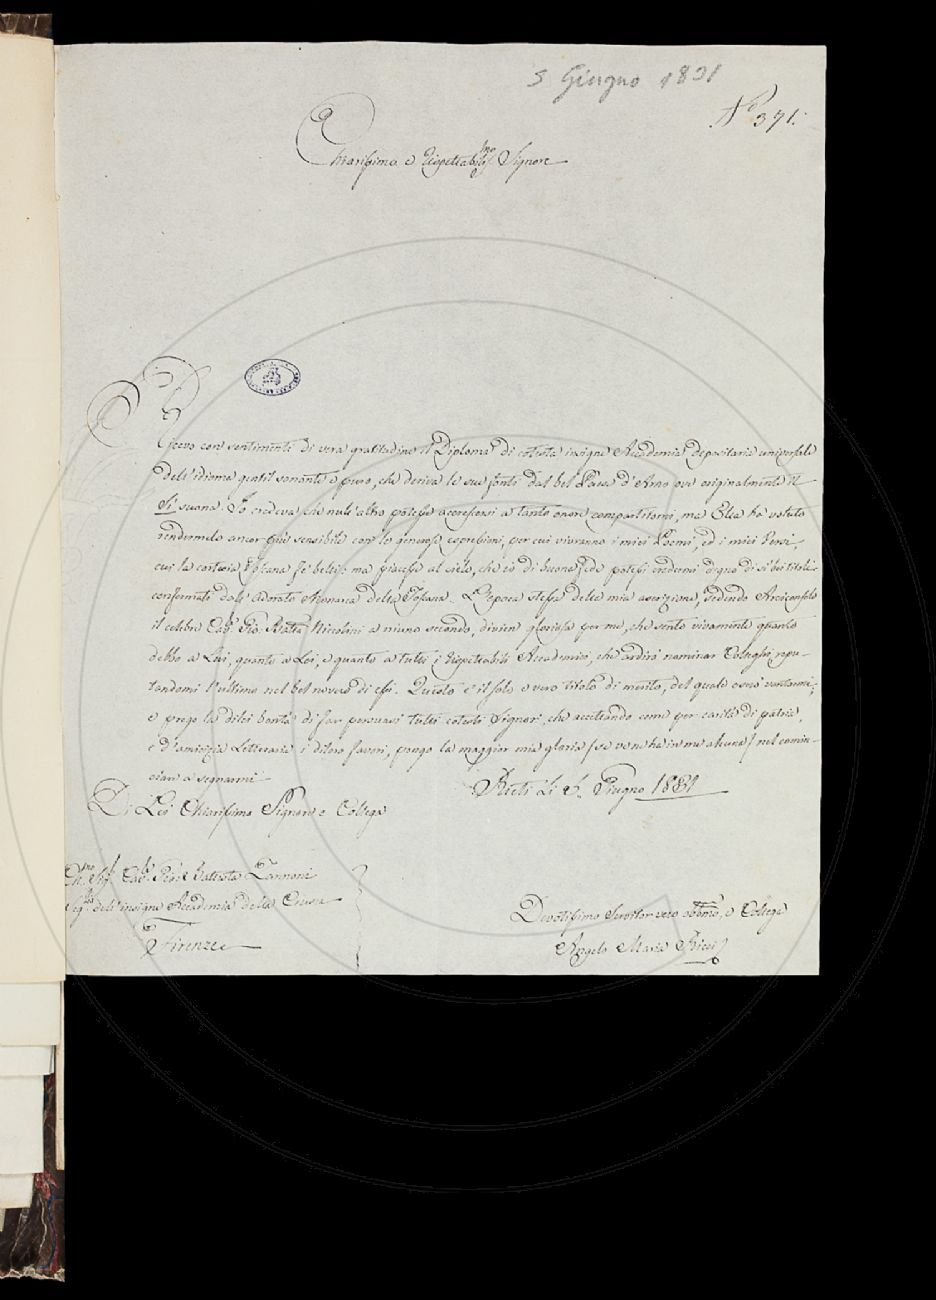 5 Giugno 1831
N.º 371.
Chiarissimo e Rispettabilis.mo Signore
Ricevo con sentimenti di vera gratitudine il Diploma di cotesta insigne Accademia depositaria universale
dell'idioma gentil sonante e puro, che deriva le sue fonti dal bel Paese d'Arno ove originalmente il
Si suona. Io credeva che null'altro potesse accrescersi a tanto onore compartitomi, ma Ella ha voluto
rendermelo ancor più sensibile con le generose espressioni, per cui vivranno i miei Poemi, ed i miei Versi,
cui la cortesia Toscana fe' belli: ma piacesse al cielo, che io di buona fede potessi credermi degno di sì bei titoli
confermati dall'adorato Monarca della Toscana. L'epoca stessa della mia ascrizione, sedendo Arciconsolo
il celebre Cav. Gio. Batta Nicolini a niuno secondo, divien gloriosa per me, che sento vivamente quanto
debbo a Lui, quanto a Lei, e quanto a tutti i rispettabili Accademici, che ardirò nominar Colleghi, repu-
tandomi l'ultimo nel bel novero di essi. Questo è il solo e vero titolo di merito, del quale oserò vantarmi;
e prego la dilei bontà di far persuasi tutti cotesti Signori, che accettando come per carità di patria,
e d'amicizia Letteraria i diloro favori, pongo la maggior mia gloria (se ve ne ha in me alcuna) nel comin-
ciare a segnarmi
Rieti Li 5. Giugno 1831
Di Lei Chiarissimo Signore e Collega
Ch.mo Sig. Cav.e Gio: Battista Zannoni
Seg.rio dell'insigne Accademia della Crusca
Firenze
Devotissimo Servitor vero obbmo, e Collega
Angelo Maria Ricci